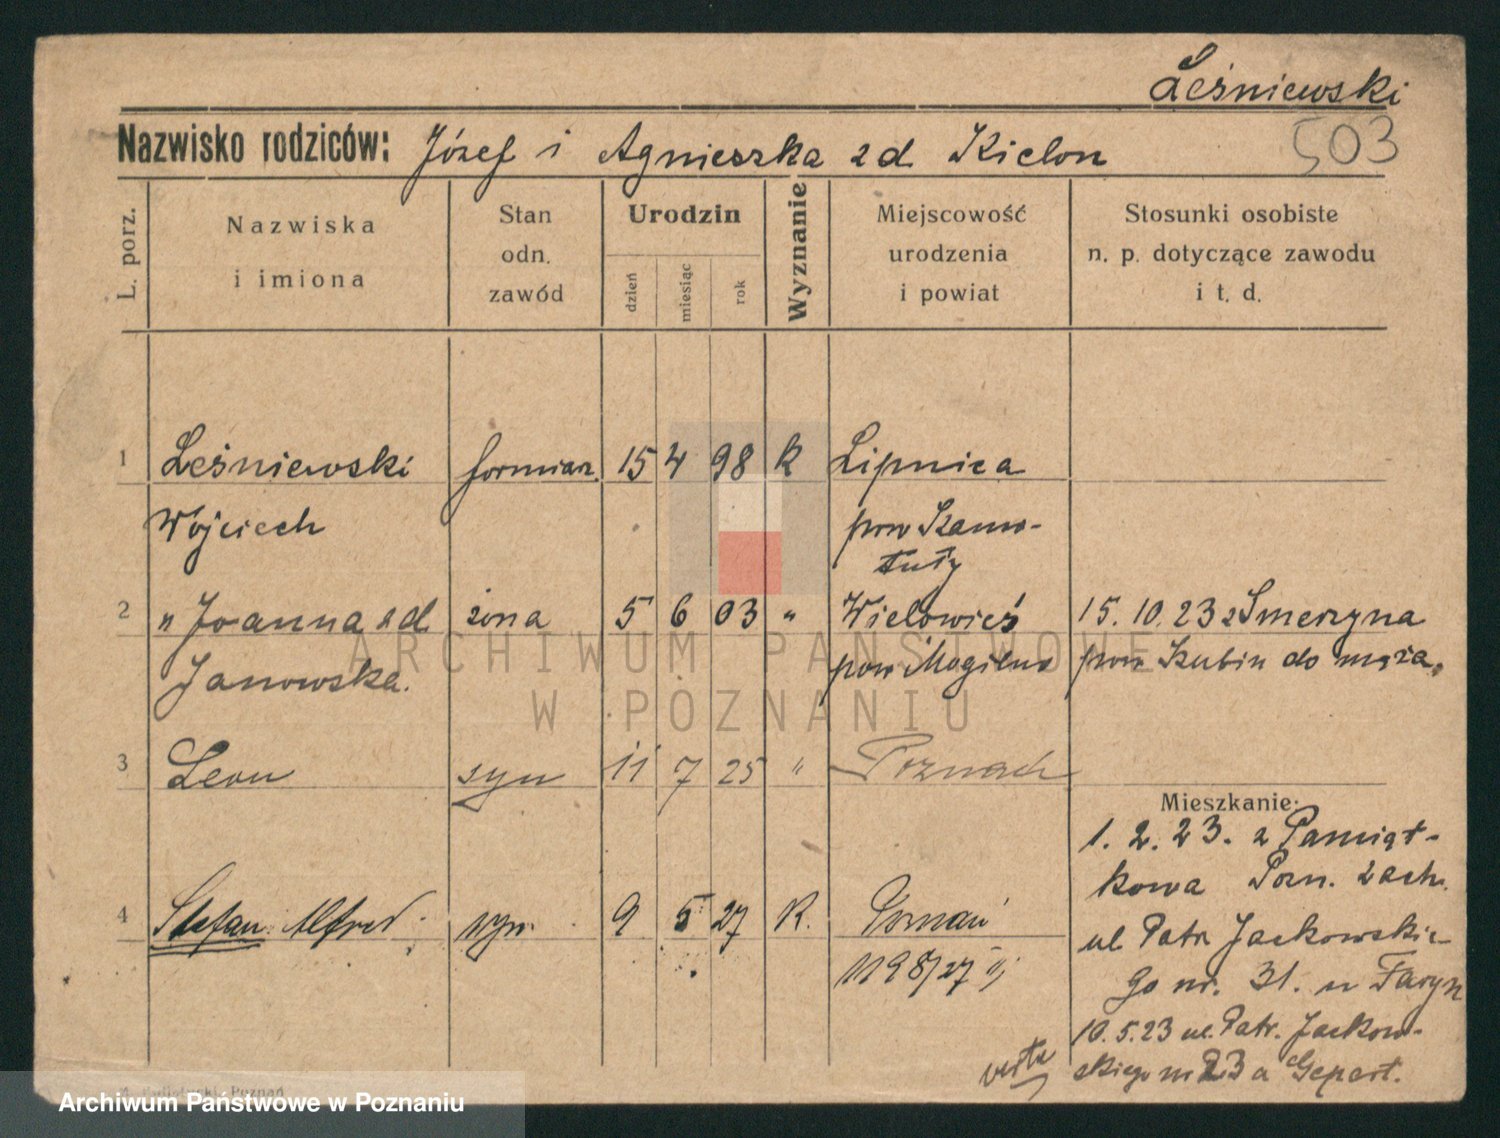 Leśniewski
503
Nazwisko rodziców: Józef i Agnieszka zd Kielon
L. porz.
Nazwiska
i imiona
Stan
odn.
zawód
Urodzin
dzień
miesiąc
rok
Wyznanie
Miejscowość
urodzenia
i powiat
Stosunki osobiste
n. p. dotyczące zawodu
i t. d.
1 Leśniewski formierz. 15 4 98 K Lipnica
Wojciech pow Szamo-
tuły
2 " Joanna zd żona 5 6 03 " Wielowieś 15.10.23 z Smerzyna
Janowska. pow Mogilno pow Szubin do męża.
3 Leon syn 11 7 25 " Poznań
Mieszkanie:
1.2.23. z Pamiąt-
kowa Pozn. zach.
ul Patr Jackowskie-
go nr. 31. u
4 Stefan Alfred syn 9 5 27 K. Poznań
1198/27 II
10.5.23 ul. Patr. Jackow-
skiego nr 23 a
verte
ARCHIWUM PAŃSTWOWE
W POZNANIU
Poznań
Archiwum Państwowe w Poznaniu